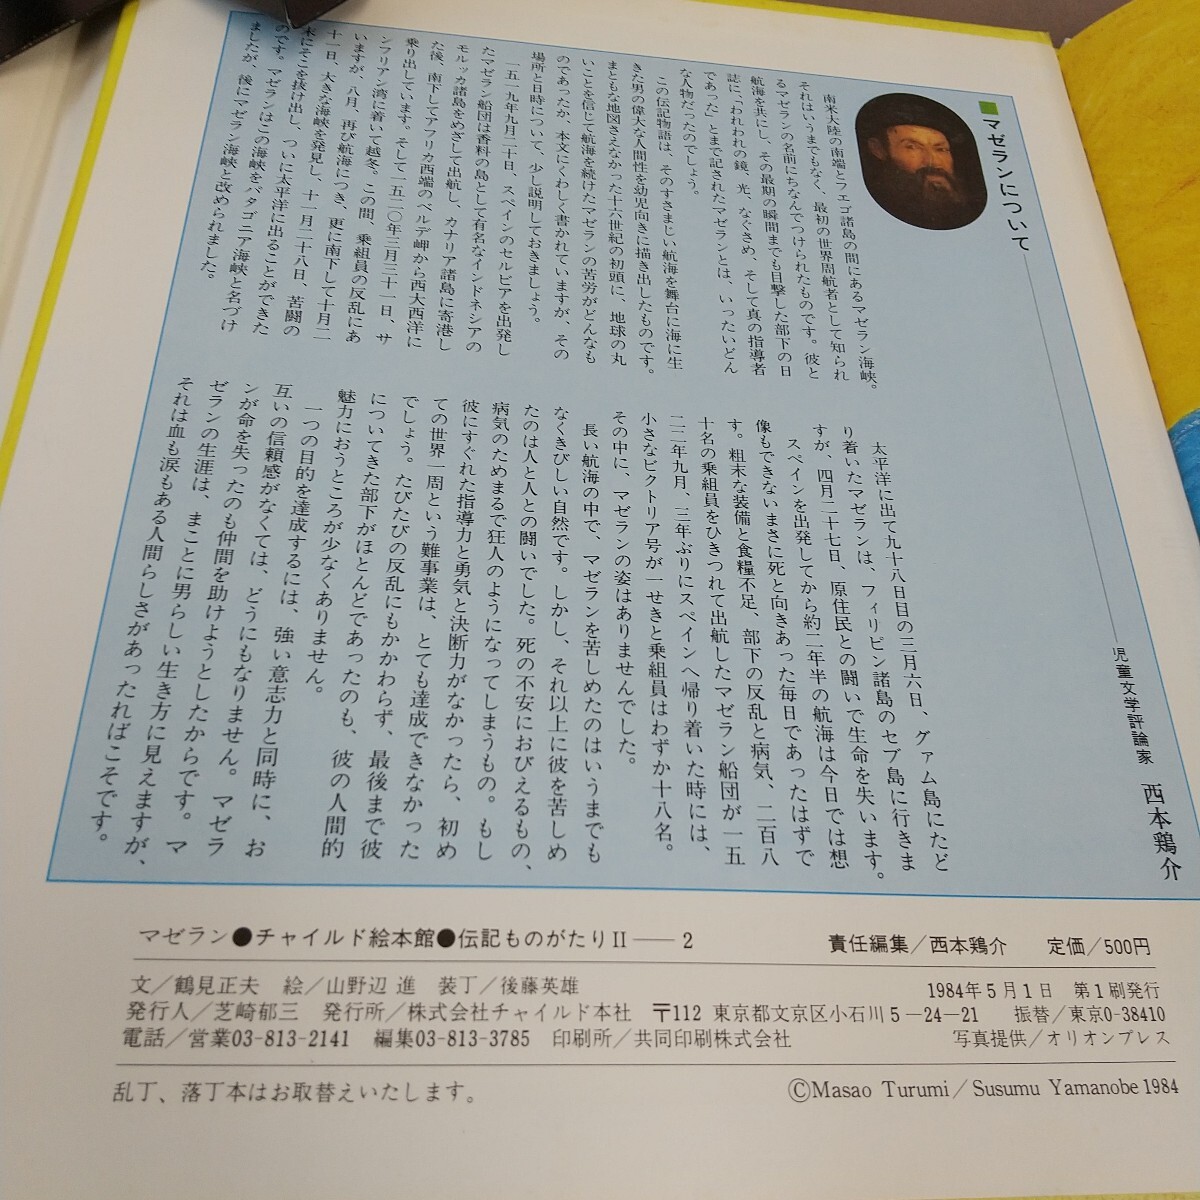 ■マゼランについて
児童文学評論家 西本鶏介
南米大陸の南端とフエゴ諸島の間にあるマゼラン海峡。
それはいうまでもなく、最初の世界周航者として知られ
るマゼランの名前にちなんでつけられたものです。彼と
航海を共にし、その最期の瞬間までも目撃した部下の日
誌に、「われわれの鏡、光、なぐさめ、そして真の指導者
であった」とまで記されたマゼランとは、いったいどん
な人物だったのでしょう。
この伝記物語は、そのすさまじい航海を舞台に海に生
きた男の偉大な人間性を幼児向きに描き出したものです。
まともな地図さえなかった十六世紀の初頭に、地球の丸
いことを信じて航海を続けたマゼランの苦労がどんなも
のであったか、本文にくわしく書かれていますが、その
場所と日時について、少し説明しておきましょう。
一五一九年九月二十日、スペインのセルビアを出発し
たマゼラン船団は香料の島として有名なインドネシアの
モルッカ諸島をめざして出航し、カナリア諸島に寄港し
た後、南下してアフリカ西端のベルデ岬から西大西洋に
乗り出しています。そして一五二〇年三月三十一日、サ
ンフリアン湾に着いて越冬。この間、乗組員の反乱にあ
いますが、八月、再び航海につき、更に南下して十月二
十一日、大きな海峡を発見し、十一月二十八日、苦闘の
末にそこを抜け出し、ついに太平洋に出ることができた
のです。マゼランはこの海峡をパタゴニア海峡と名づけ
ましたが、後にマゼラン海峡と改められました。
太平洋に出て九十八日目の三月六日、グァム島にたど
り着いたマゼランは、フィリピン諸島のセブ島に行きま
すが、四月二十七日、原住民との闘いで生命を失います。
スペインを出発してから約二年半の航海は今日では想
像もできないまさに死と向きあった毎日であったはずで
す。粗末な装備と食糧不足、部下の反乱と病気、二百八
十名の乗組員をひきつれて出航したマゼラン船団が一五
二二年九月、三年ぶりにスペインへ帰り着いた時には、
小さなビクトリア号が一せきと乗組員はわずか十八名。
その中に、マゼランの姿はありませんでした。
長い航海の中で、マゼランを苦しめたのはいうまでも
なくきびしい自然です。しかし、それ以上に彼を苦しめ
たのは人と人との闘いでした。死の不安におびえるもの、
病気のためまるで狂人のようになってしまうもの。もし
彼にすぐれた指導力と勇気と決断力がなかったら、初め
ての世界一周という難事業は、とても達成できなかった
でしょう。たびたびの反乱にもかかわらず、最後まで彼
についてきた部下がほとんどであったのも、彼の人間的
魅力におうところが少なくありません。
一つの目的を達成するには、強い意志力と同時に、お
互いの信頼感がなくては、どうにもなりません。マゼラ
ンが命を失ったのも仲間を助けようとしたからです。マ
ゼランの生涯は、まことに男らしい生き方に見えますが、
それは血も涙もある人間らしさがあったればこそです。
マゼラン●チャイルド絵本館●伝記ものがたりII──2 責任編集/西本鶏介 定価/500円
文/鶴見正夫 絵/山野辺 進 装丁/後藤英雄 1984年5月1日 第1刷発行
発行人/芝崎郁三 発行所/株式会社チャイルド本社 〒112 東京都文京区小石川5-24-21 振替/東京0-38410
電話/営業03-813-2141 編集03-813-3785 印刷所/共同印刷株式会社 写真提供/オリオンプレス
乱丁、落丁本はお取替えいたします。 ©Masao Turumi/Susumu Yamanobe 1984